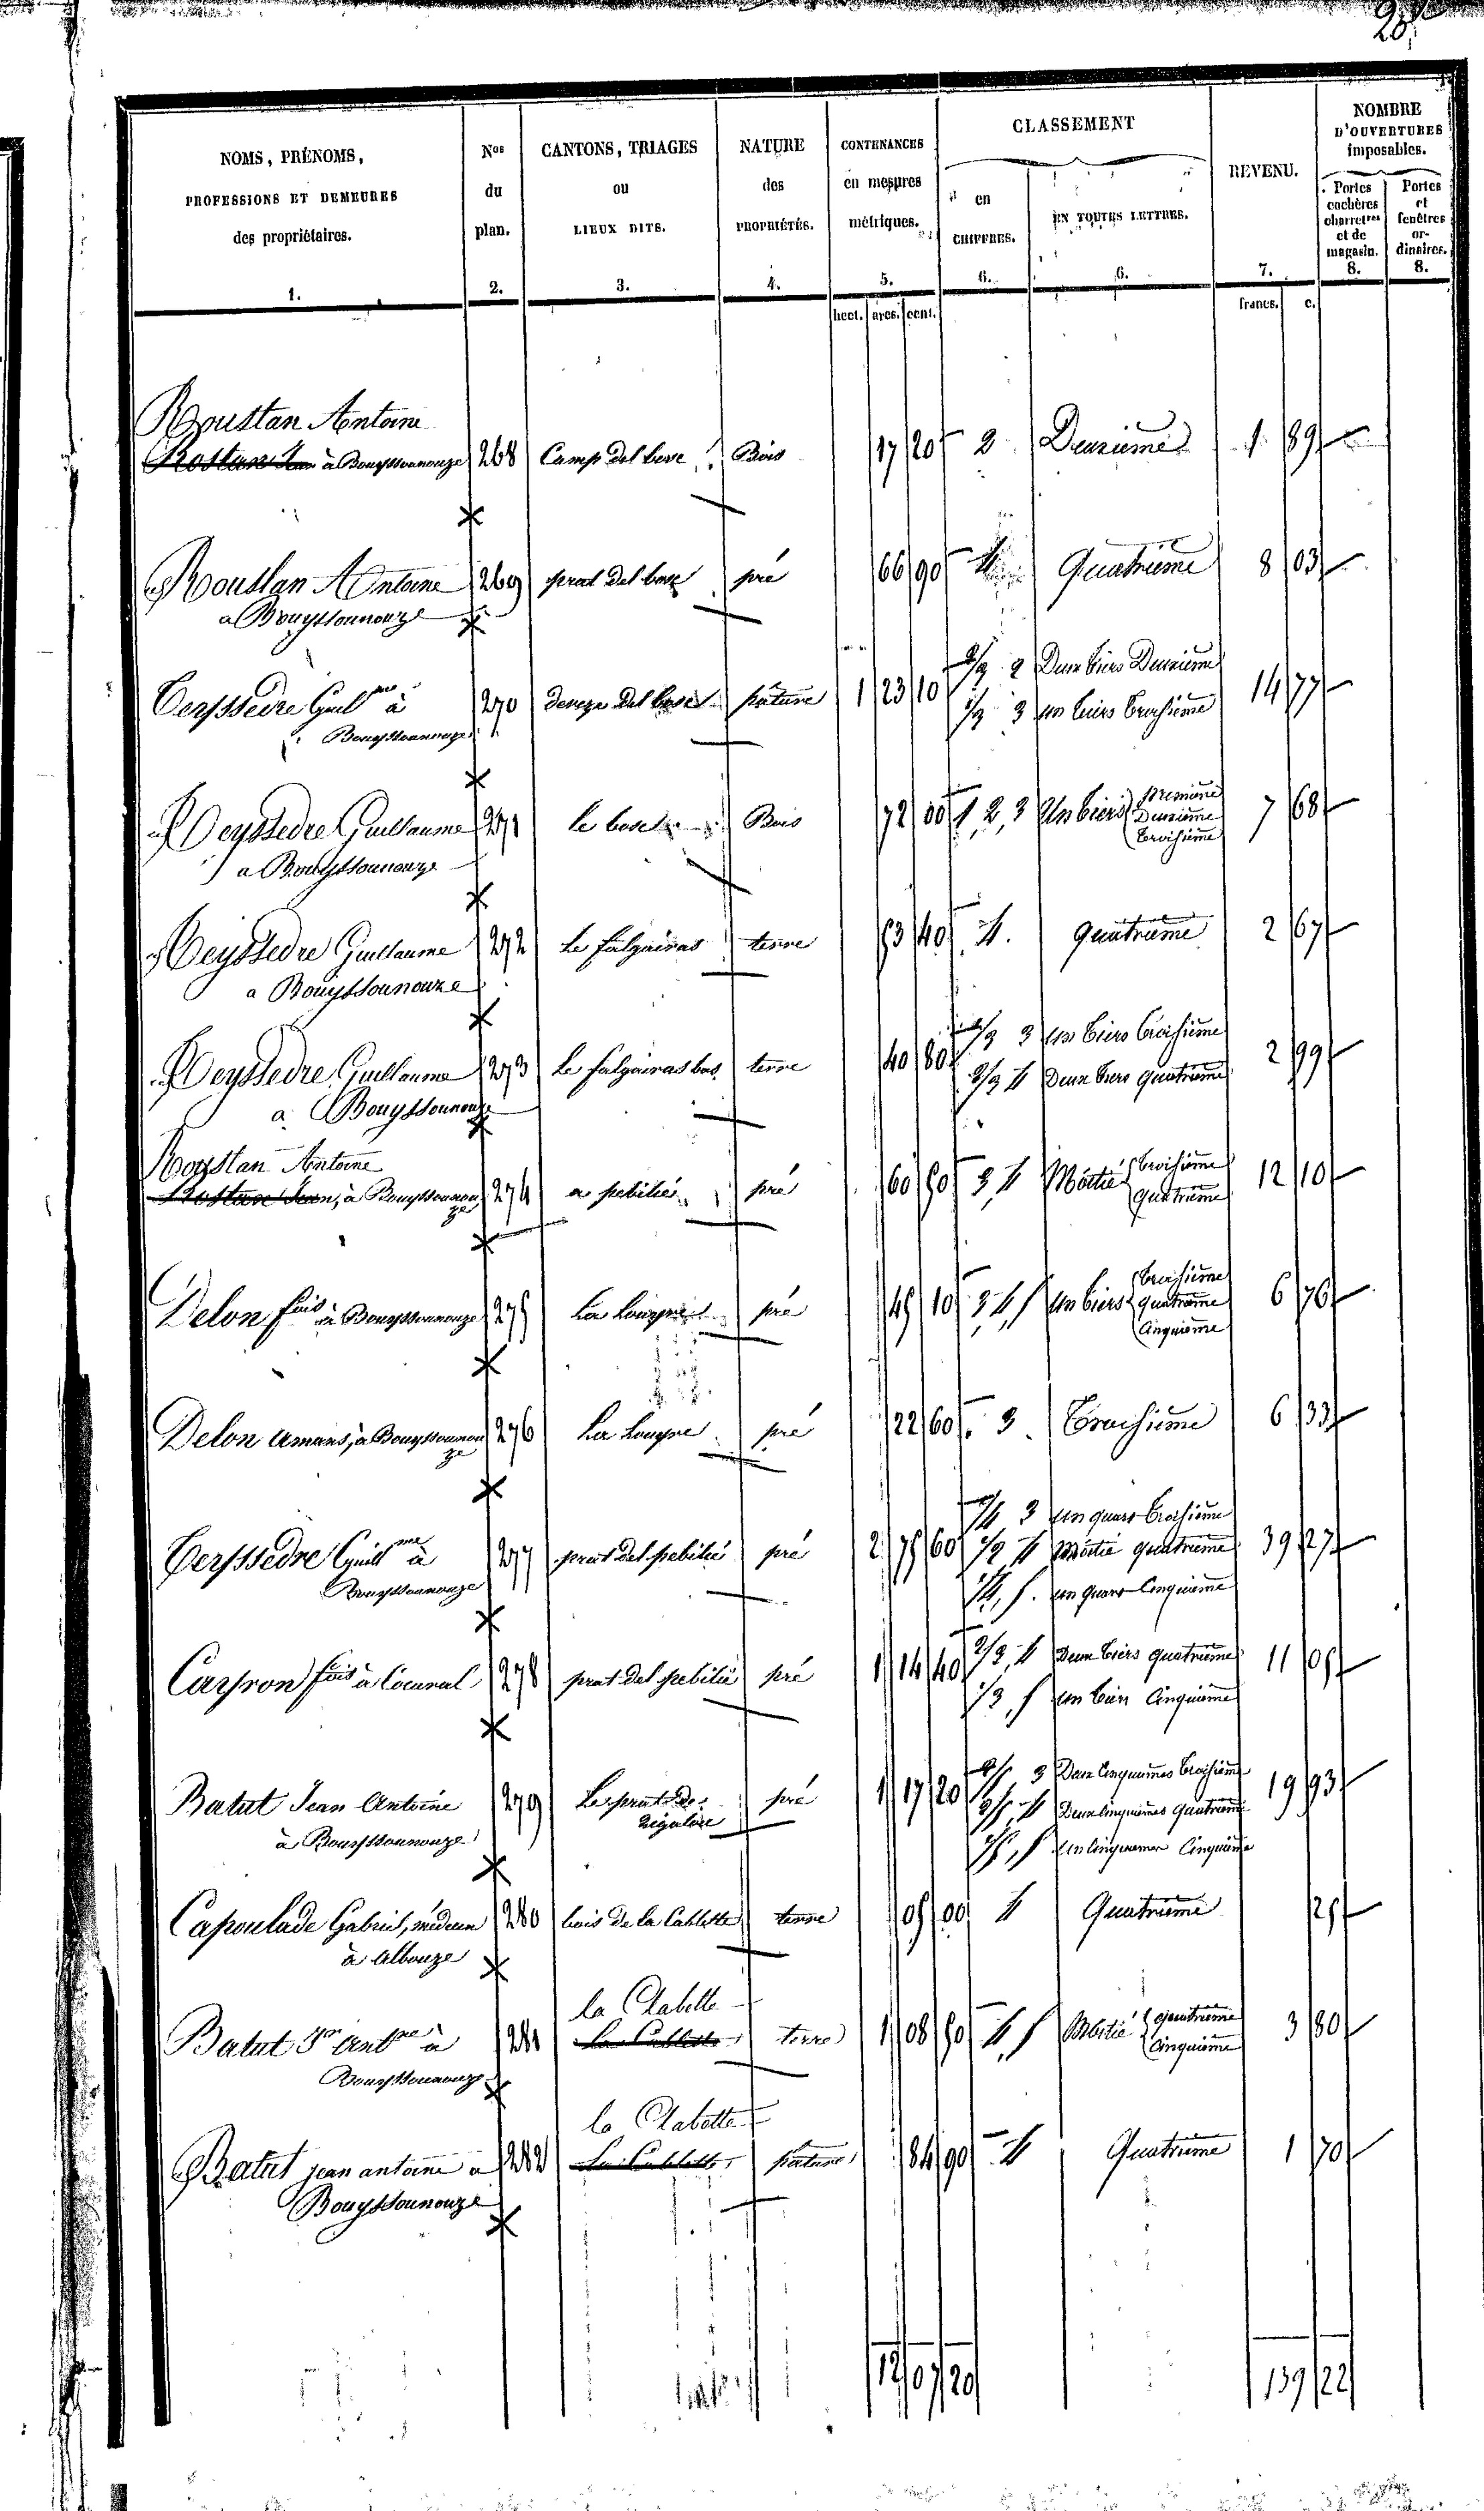 NOMS, PRÉNOMS, PROFESSIONS ET DEMEURES des propriétaires. 1.
Nos du plan. 2.
CANTONS, TRIAGES ou LIEUX DITS. 3.
NATURE des PROPRIÉTÉS. 4.
CONTENANCES en mesures métriques. 5.
CLASSEMENT
en CHIFFRES. 6.
EN TOUTES LETTRES. 6.
REVENU. 7.
NOMBRE D'OUVERTURES imposables.
Portes cochères charretres et de magasin. 8.
Portes et fenêtres or- dinaires. 8.
hect. ares. cent. francs. c.
Roustan Antoine
Rostan Jean à Bouyssounouze 268 Camp del bosc Bois 17 20 2 Deuxième 1 89
Roustan Antoine 269 prat del bosc pré 66 90 4 Quatrième 8 03
a Bouyssounouze
2/3 2 Deux tiers Deuxième
Teyssedre Guilme à 270 deveze del bosc pâture 1 23 10 14 77
1/3 3 un tiers troisième
Bouyssounouze
Teyssedre Guillaume 271 le bosc Bois 72 00 1, 2, 3 Un tiers première Deuxième troisième 7 68
a Bouyssounouze
Teyssedre Guillaume 272 Le falgairas terre 53 40 4. quatrième 2 67
a Bouyssounouze
1/3 3 un tiers troisième
Teyssedre Guillaume 273 Le falgairas bas terre 40 80 2 99
2/3 4 Deux tiers quatrième
a Bouyssounouze
Roustan Antoine
Rostan Jean, à Bouyssounouze 274 a pebilié pré 60 50 3, 4 Moitié troisième quatrième 12 10
Delon fois à Bouyssounouze 275 La Lougne pré 45 10 3, 4, 5 un tiers troisième quatrième Cinquième 6 76
Delon amans, à Bouyssounouze 276 La Lougne pré 22 60 3 Troisième 6 33
1/4 3 un quart troisième
Teyssedre Guilme à 277 prat del pebilié pré 2 75 60 1/2 4 Moitié quatrième 39 27
Bouyssounouze
1/4, 5. un quart Cinquième
Cayron fois à 278 prat del pebilié pré 1 14 40 2/3, 4 Deux tiers quatrième 11 05
1/3, 5 un tiers Cinquième
2/5 3 Deux Cinquièmes troisième
Batut Jean Antoine 279 Le prat de pré 1 17 20 2/5, 4 Deux Cinquièmes quatrième 19 93
à Bouyssounouze
1/5, 5 un Cinquième Cinquième
Capoulade Gabriel, médecin 280 bois de la Cablette terre 05 00 4 Quatrième 25
à Albouze
la Clabette
Batut Jn Antne à 281 La Cablette terre 1 08 50 4, 5 Moitié quatrième Cinquième 3 80
Bouyssounouze
la Clabette
Batut jean antoine a 282 La Cablette pâture 84 90 4 Quatrième 1 70
Bouyssounouze
12 07 20 139 22